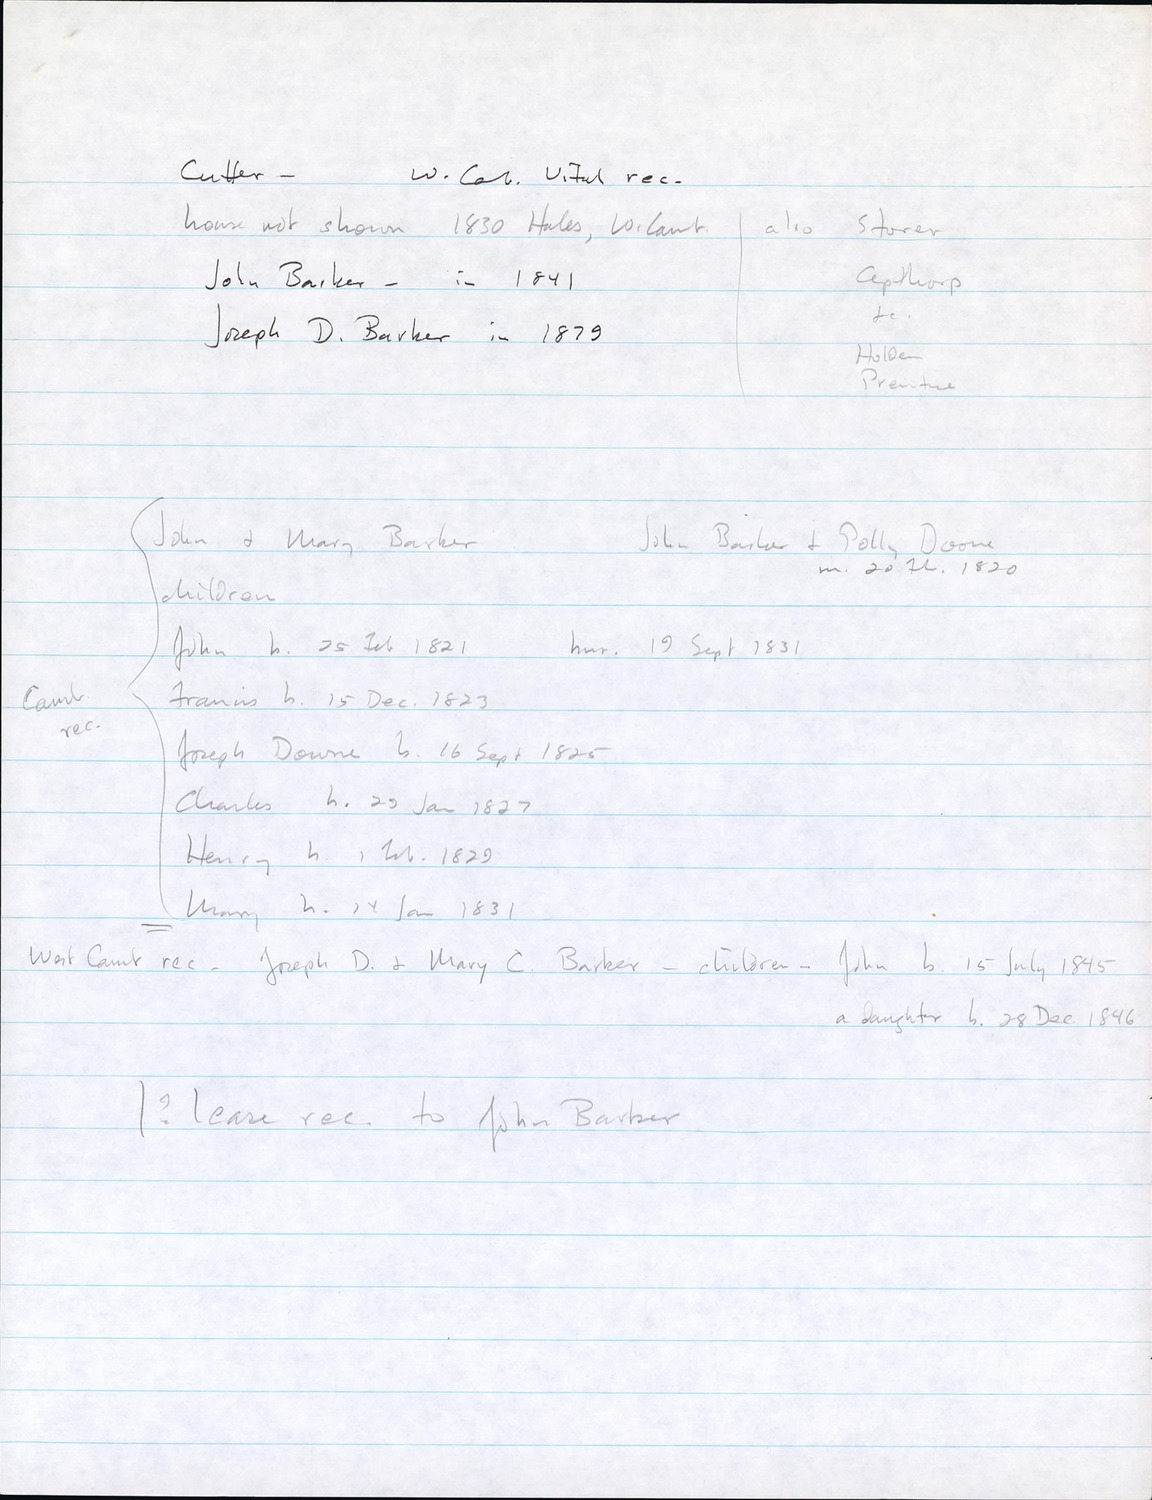 Cutter – W. Cab. Vital rec.
house not shown 1830 Hales, W. Camb. also Storer
John Barker – in 1841 Apthorp
&c.
Joseph D. Barker in 1879
Holden
Prentice
John & Mary Barker John Barker & Polly Doone
m. 20 Feb. 1820
children
John b. 25 Feb 1821 bur. 19 Sept 1831
Camb. Francis b. 15 Dec. 1823
rec.
Joseph Downe b. 16 Sept 1825
Charles b. 29 Jan 1827
Henry b. 1 Feb. 1829
Mary b. 14 Jan 1831
West Camb rec – Joseph D. & Mary C. Barker – children – John b. 15 July 1845
a daughter b. 28 Dec. 1846
? lease rec. to John Barker